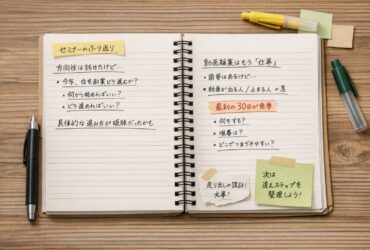 セミナーのふり返り
方向性は話せたけど…
・今年、在宅副業どう進むか？
・何から始めればいい？
・どう進めればいい？
具体的な進み方が曖昧だったかも
動画編集はもう「仕事」
・需要はあるけど…
・結果が出る人／止まる人 の差
最初の30日が重要
・何をする？
・順番は？
・どこでつまづきやすい？
走り出しの設計！
大事！
次は
進むステップを
整理しよう！